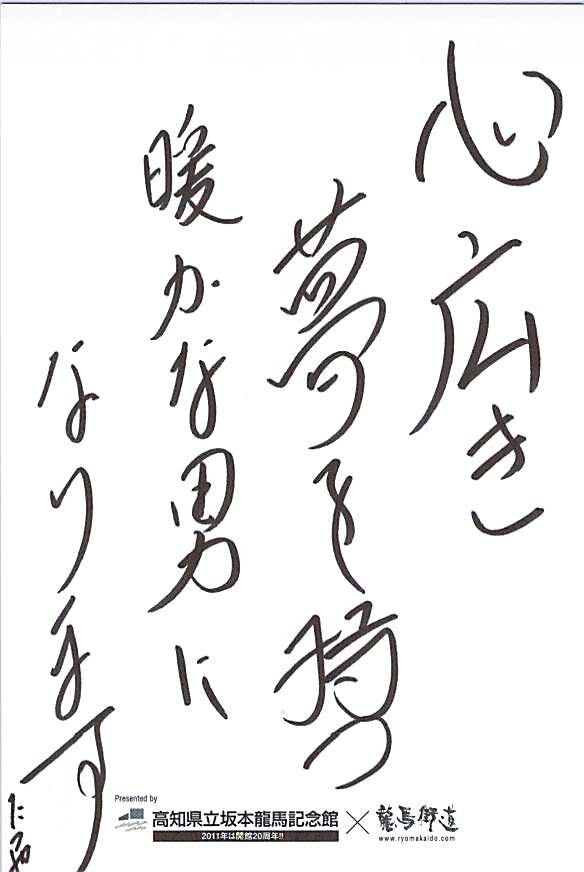 心広き
夢を持つ
暖かな男に
なります
Presented by
高知県立坂本龍馬記念館
2011年は開館20周年!!
×
龍馬街道
www.ryomakaido.com